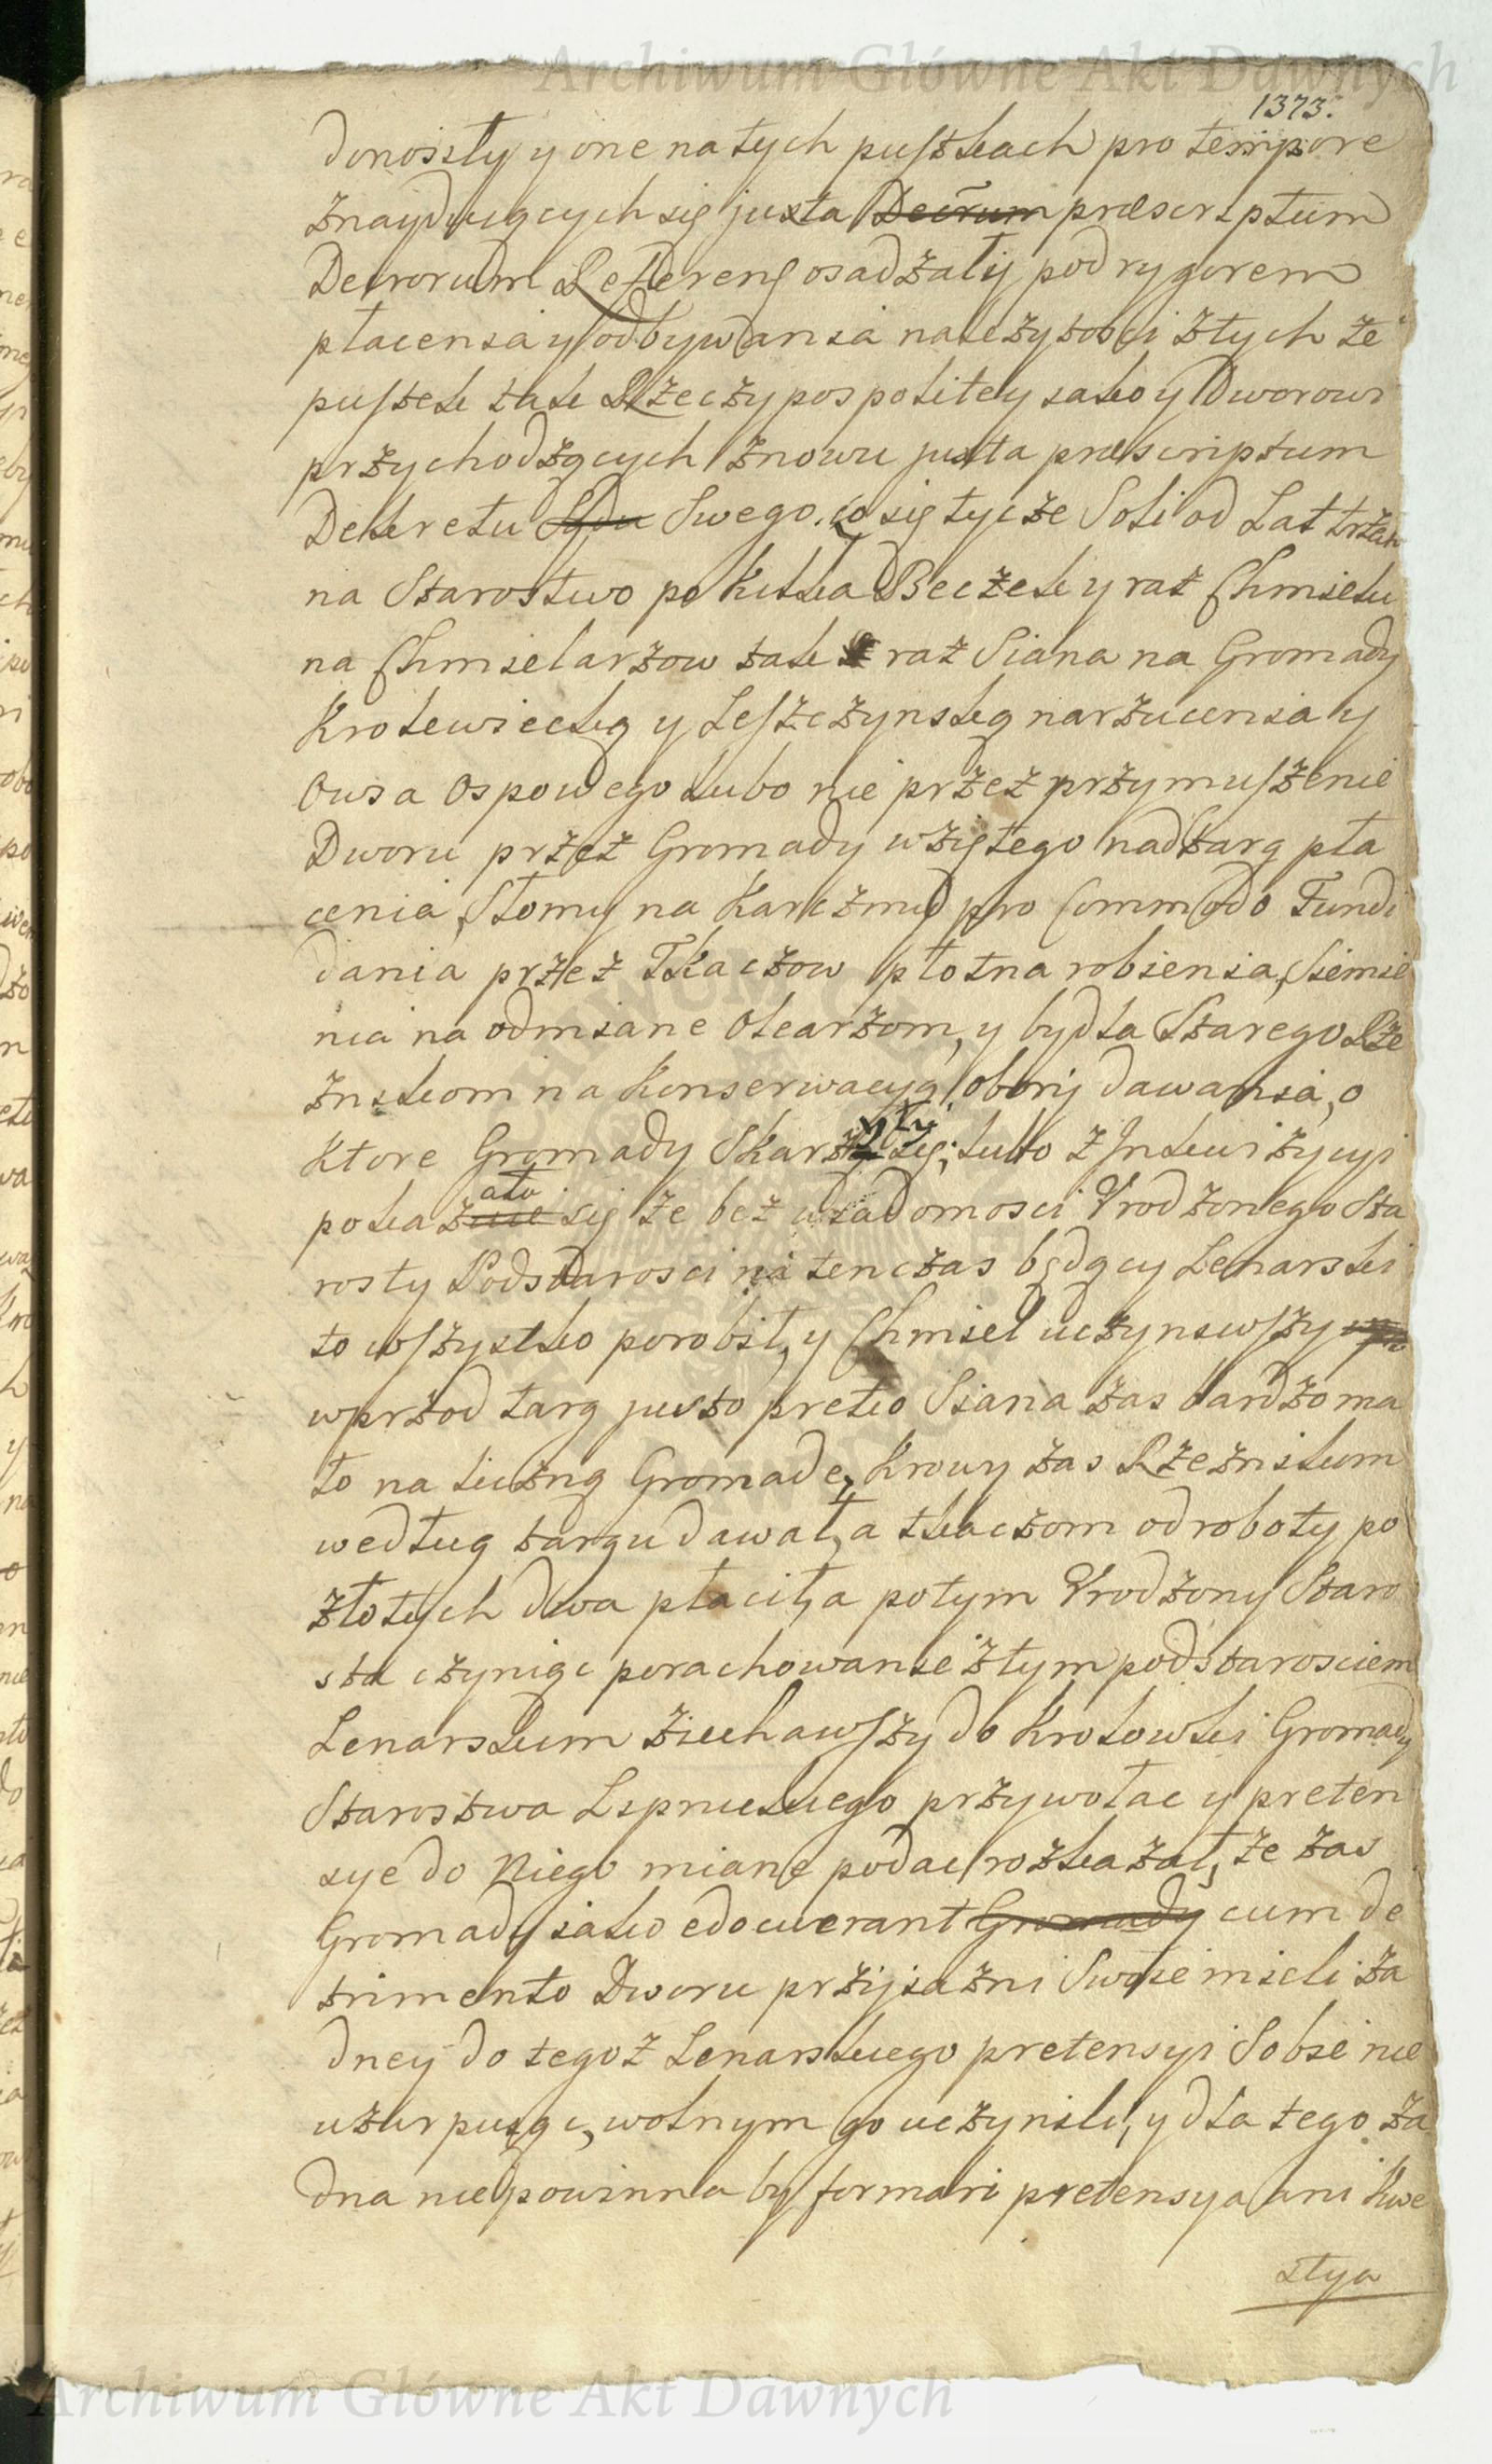 Archiwum Główne Akt Dawnych
1373.
donosiły y one na tych pustkach pro tempore
znayduiących się juxta Decrum præscriptum
Decrorum Refferens osadzały pod rygorem
płacenia y odbywania należytości z tych że
pustek tak Rzeczypospolitey iako y Dworowi
przychodzących znowu juxta præscriptum
Dekretu Sądu Swego. co się tycze Soli od Lat trzech
na Starostwo po kilka Beczek y raz Chmielu
na Chmielarzow tak raz Siana na Gromady
Krolewiecką y Leszczynską narzucenia y
Owsa Ospowego lubo nie przez przymuszenie
Dworu przez Gromady wziętego nad targ pła
cenia, Słomy na Karczmy pro Commodo Fundi
dania przez Tkaczow płotna robienia, Siemie
nia na odmiane Olearzom, y bydła Starego Rze
znikom na Konserwacyą obory dawania, o
ktore Gromady Skarżyły się; lubo z Inkwizycyi
pokazało się że bez wiadomosci Urodzonego Sta
rosty Podstarosci na tenczas będący Lenarski
to wszystko porobił, y Chmiel uczyniwszy
wprzod targ justo pretio Siana zas bardzo ma
ło na luźną Gromade, Krowy zas Rzeznikom
według targu dawał, a tkaczom od roboty po
złotych dwa płacił, a potym Urodzony Staro
sta czyniąc porachowanie z tym podstarosciem
Lenarskim ziechawszy do Krolowki Gromady
Starostwa Lipnickiego przywołac y preten
sye do Niego miane podac rozkazał, że zas
Gromady iako edocuerant Gromady cum de
trimento Dworu przyiazni Swoie mieli ża
dney do tegoż Lenarskiego pretensyi Sobie nie
uzurpuiąc, wolnym go uczynili, y dla tego ża
dna nie powinna by formari pretensya ani Kwe
stya
Archiwum Główne Akt Dawnych